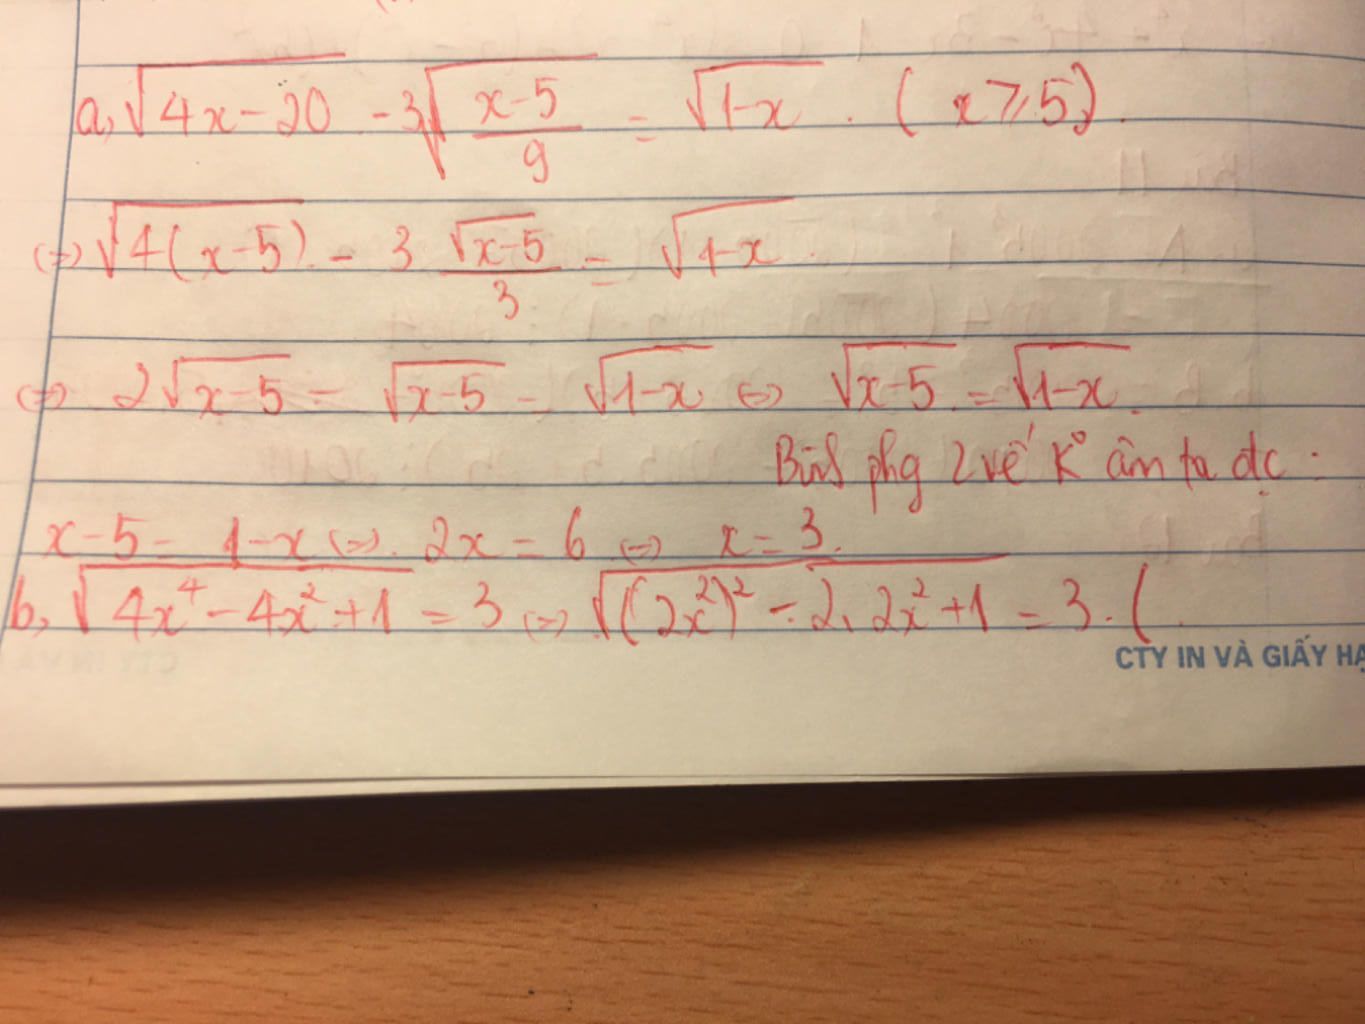 a, √(4x-20) - 3√((x-5)/9) = √(1-x) . (x ⩾ 5).
(=) √(4(x-5)) - 3 √(x-5)/3 = √(1-x) .
(=) 2√(x-5) - √(x-5) = √(1-x) (=) √(x-5) = √(1-x) .
Bình phg 2 vế K° âm ta dc :
x-5 = 1-x (=) . 2x = 6 (=) x = 3.
b, √(4x⁴-4x²+1) = 3 (=) √((2x²)² - 2. 2x²+1) = 3 . (
CTY IN VÀ GIẤY HẠ